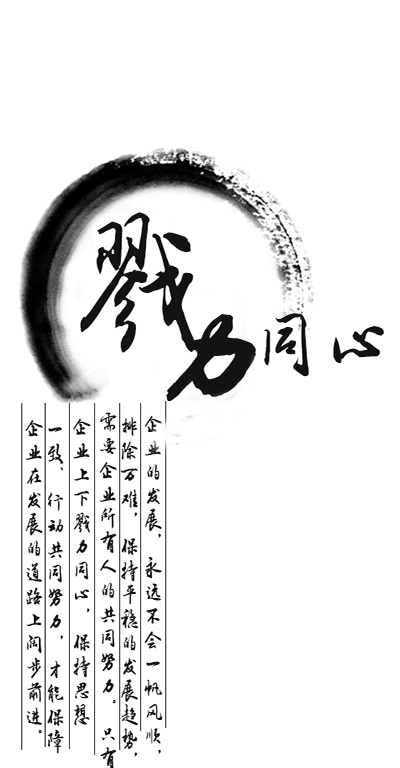 戮力同心
企业的发展，永远不会一帆风顺，
排除万难，保持平稳的发展趋势，
需要企业所有人的共同努力。只有
企业上下戮力同心，保持思想
一致、行动共同努力，才能保障
企业在发展的道路上阔步前进。